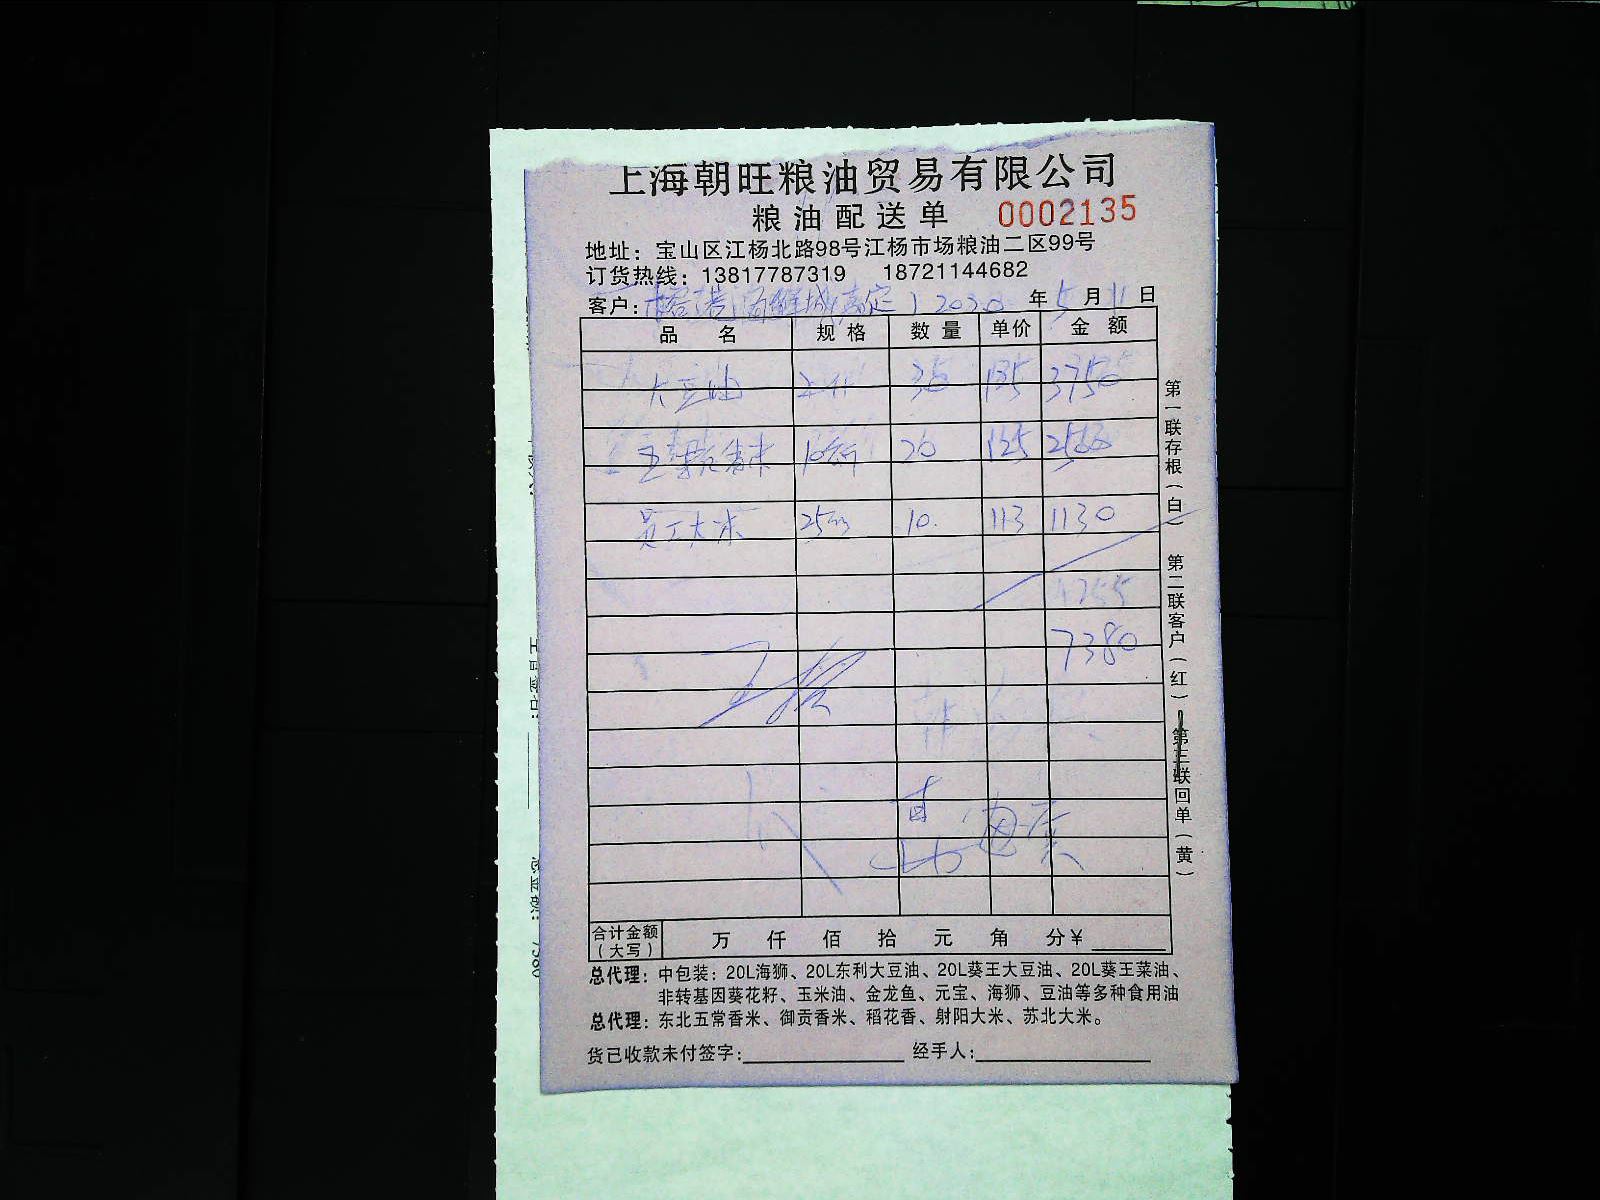 上海朝旺粮油贸易有限公司
粮油配送单 0002135
地址：宝山区江杨北路98号江杨市场粮油二区99号
订货热线：13817787319 18721144682
客户： 2020 年 5 月 11 日
品名 规格 数量 单价 金额
大豆油 135 3750
20 125 2500
员工大米 25 10 113 1130
7380
合计金额（大写） 万 仟 佰 拾 元 角 分￥
总代理：中包装：20L海狮、20L东利大豆油、20L葵王大豆油、20L葵王菜油、
非转基因葵花籽、玉米油、金龙鱼、元宝、海狮、豆油等多种食用油
总代理：东北五常香米、御贡香米、稻花香、射阳大米、苏北大米。
货已收款未付签字： 经手人：
第一联存根（白） 第二联客户（红） 第三联回单（黄）